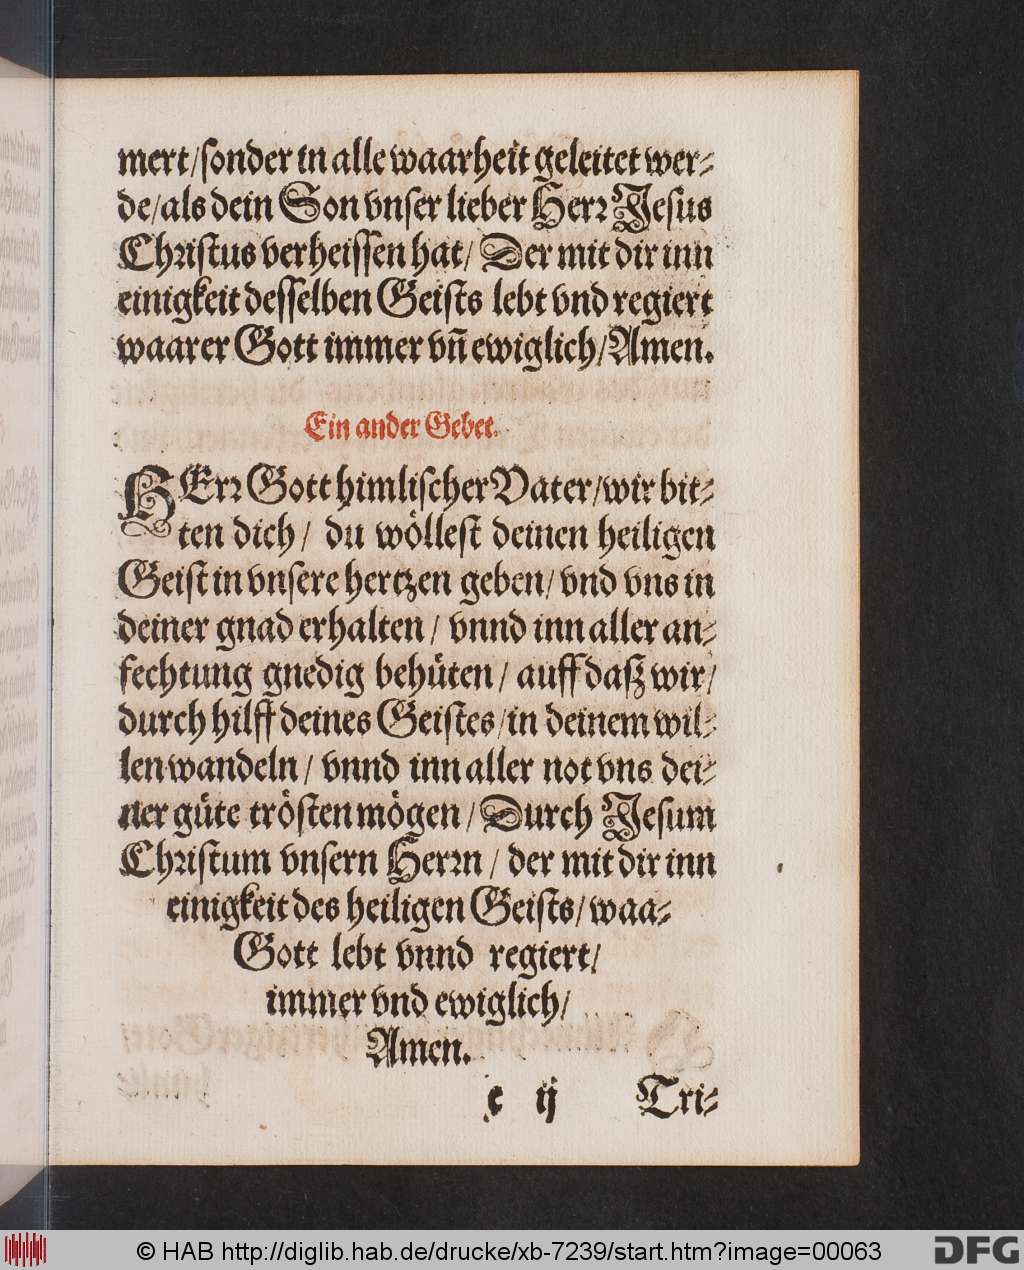 mert/sonder in alle waarheit geleitet wer⸗
de/als dein Son vnser lieber Herr Jesus
Christus verheissen hat/ Der mit dir inn
einigkeit desselben Geists lebt vnd regiert
waarer Gott immer vñ ewiglich/Amen.
Ein ander Gebet.
HErr Gott himlischer Vater/wir bit⸗
ten dich/ du wöllest deinen heiligen
Geist in vnsere hertzen geben/ vnd vns in
deiner gnad erhalten/ vnnd inn aller an⸗
fechtung gnedig behüten/ auff daß wir/
durch hilff deines Geistes/in deinem wil⸗
len wandeln/ vnnd inn aller not vns dei⸗
ner güte trösten mögen/ Durch Jesum
Christum vnsern Herrn/ der mit dir inn
einigkeit des heiligen Geists/waa⸗
Gott lebt vnnd regiert/
immer vnd ewiglich/
Amen.
c ij Tri⸗
© HAB http://diglib.hab.de/drucke/xb-7239/start.htm?image=00063 DFG